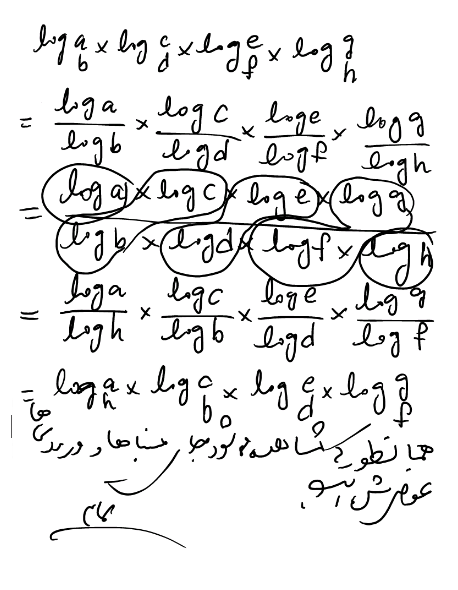 log a b × log c d × log e f × log g h
= log a / log b × log c / log d × log e / log f × log g / log h
= log a × log c × log e × log g / log b × log d × log f × log h
= log a / log h × log c / log b × log e / log d × log g / log f
= log a h × log c b × log e d × log g f
همانطور که مشاهده جا مبناها و ورودی ها
عوض شد